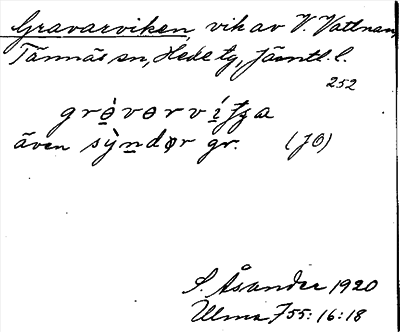 Gravarviken, vik av V. Vattnan,
Tännäs sn, Hede tg, Jämtl. l.
252
även sỳndør gr. (JO)
S. Åsander 1920
Ulma 755:16:18